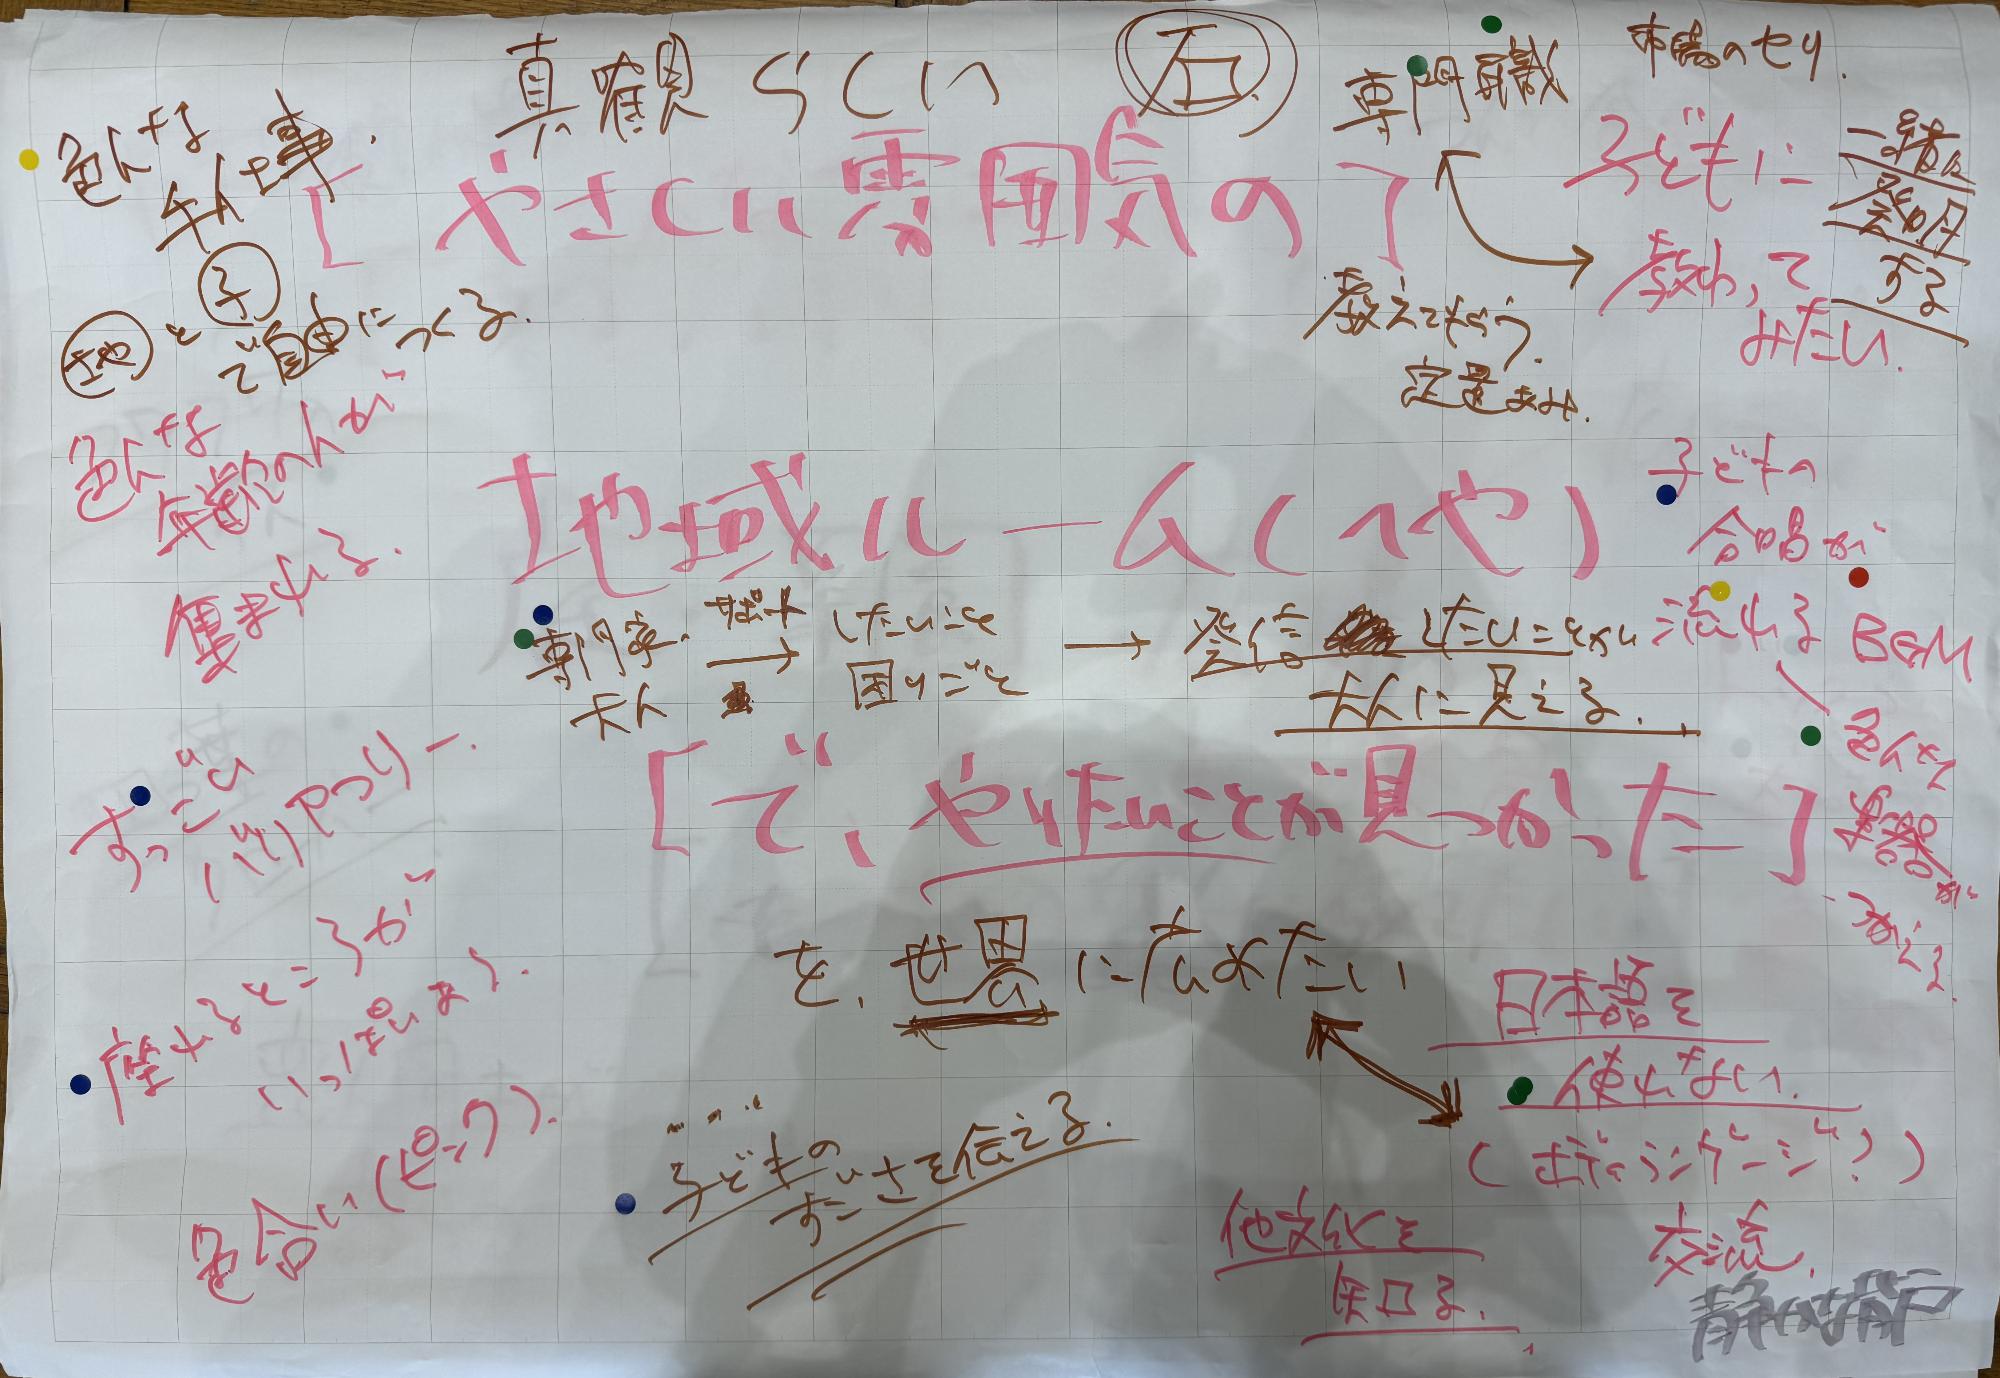 真鶴らしい 石
専門職
市場のセリ.
色んな
仕事.
[やさしい雰囲気の]
子どもに
教わって
みたい.
一緒に
発明
する
地と子
で自由につくる.
教えてもらう.
色んな
年齢の人が
集まれる.
地域ルーム(へや)
子どもの
合唱が
流れる
BGM
色んな
楽器が
つかえる.
専門家.
大人
サポート
したいこと
困りごと
発信 したいことがい
大人に見える.
すっごい
パリやつリー.
[で、やりたいことが見つかった]
を、世界に広めたい
座れるところが
いっぱいあり.
色合い(ピンク).
子どもの
すごいさを伝える.
日本語を
使わない.
(ボディランゲージ?)
交流.
他文化を
知る.